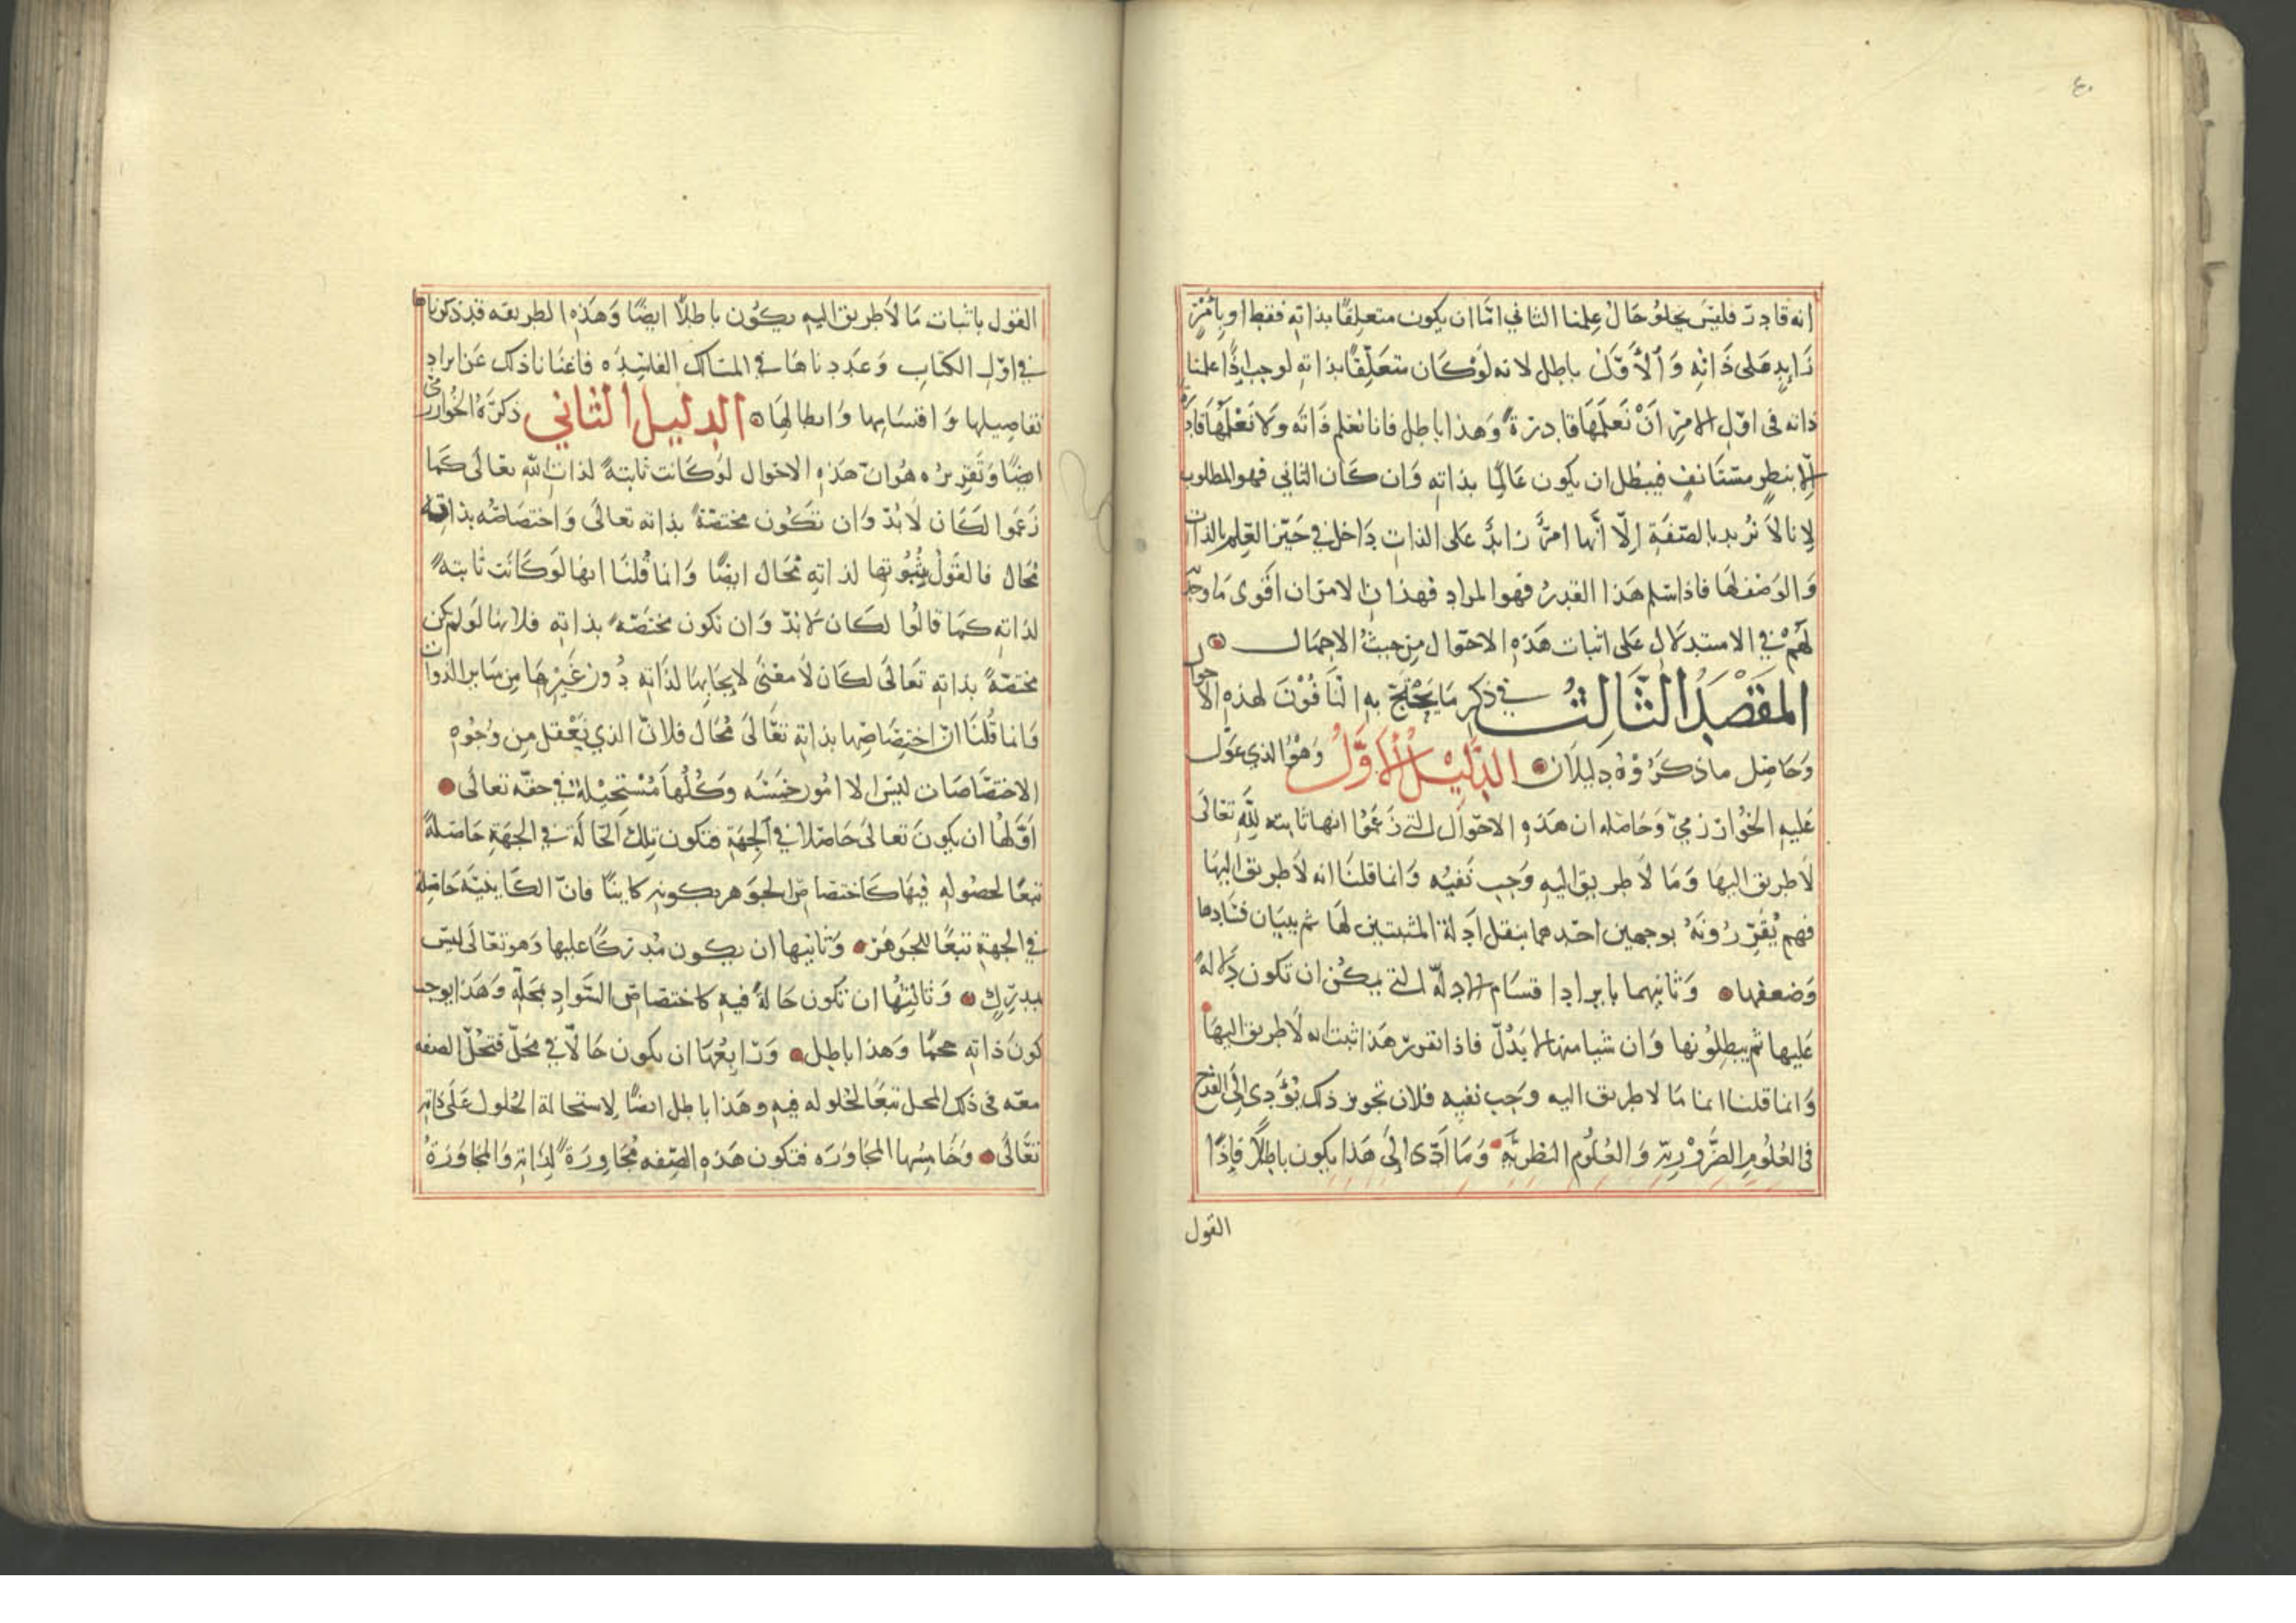 ٤٠
انه قادر فليس يخلو حال علمنا الثاني امّا ان يكون متعلقًا بذاته فقط او بامرٍ
زايدٍ على ذاته وَالأوّل باطل لانه لَوْ كَان متعَلّقًا بذاته لوجب اذًا علمنا
ذاته فى اوّل الامرِ أَنْ نَعلمَها قادرةً وَهذا باطل فانا نعْلم ذَاتَه وَلاَ نَعْلمُهَا قادرةً
الّا بنظرٍ مستَانفٍ فيبْطل ان يكون عَالمًا بذاته وَان كَان الثاني فهو المطلوب
لانا لاَ نُريد بالصّفَةِ إلّا أنها امرٌ زايدٌ عَلى الذات دَاخل في حَيّز العِلم بالذات
وَالوَصْف لهَا فاذا سّلم هَذا القدر فهو المراد فهذان الامرَان اقوى مَا وجّه
لهُمْ في الاستدلال عَلى اثبات هَذه الاحوال من حيثُ الاجمال
المَقْصَدُ الثَّالِثُ في ذكر مَا يَحْتجّ به النَافُوْنَ لهذه الأحوال
وَحَاصل ما ذكرُوْهُ دليلاَن الدَّلِيْلُ الأَوَّلُ وَهُوَ الذي عَوّل
عَليه الخُوارزميّ وَحَاصله ان هَذه الاحوَال التي زعَمُوا انها ثابته للهِ تعَالَى
لاَ طريق اليهَا وَمَا لاَ طريق اليه وَجب نَفيُه وَانما قلنَا انه لاَ طريق اليهَا
فهم يُقَرِّرُونَهُ بوجهين احدهما بنقل أدلة المثبتين لهَا ثم بيَان فسَادها
وَضعفها وَثانيهما بايراد اقسَام الادلّه التي يمكن ان تكون دَلالهً
عَليها ثم يبطلُونها وَان شيا منها لا يَدُلّ فاذا تقرر هَذا ثبت انه لاَ طريق اليهَا
وَانما قلنا انما مَا لا طريق اليه وَجب نفيه فلان تجويز ذلك يُؤَدى الَى القدح
فى العُلُومِ الضَّرُوْرِيّهِ وَالعُلُوم النظريَّهِ وَمَا أَدّى الَى هَذا يكون باطِلاً فإذًا
القول
القول باثبات مَا لاَ طريق اليه يكُون باطلًا ايضًا وَهَذه الطريقه قد ذكرناها
في اوّل الكتاب وَعَددناهَا في المسَالك الفاسِده فاغنَانا ذلك عَن ايراد
تفاصيلها وَاقسَامها وَابطالهَا الدليل الثاني ذكرَهُ الخُوارزمي
ايضًا وَتَقريرُه هُوَ انّ هَذه الاحوال لوْ كَانت ثابتةً لذات الله تعَالَى كَما
زعَمَوا لكَان لاَ بُدّ وَان تكُون مختصّةً بذاته تعالَى وَاختصَاصُه بذاته
مُحَال فالقَولُ بثُبُوتها لذاته مُحَال ايضًا وَانما قُلنَا انهَا لوَ كَانَت ثابتهً
لذاته كمَا قالُوا لكَان لاَ بدّ وَان تكون مختصّهً بذاته فلانها لَو لم تكن
مختصّةً بذاته تعَالَى لكَان لاَ معْنَى لايجَابها لذَاته دُون غَيْرهَا من سَاير الذوات
وَانما قُلنَا انّ اختِصَاصِها بذاته تعَالَى مُحَال فلانّ الذي يُعْقل من وُجُوه
الاختصَاصَات ليسَ الا امُور خمسَه وَكُلُّهَا مُسْتَحيْلة في حقّه تعَالَى
أوّلهُا ان يكونَ تعَالَى حَاصلا في الجِهَة فتكون تِلك الحَالَة في الجهَةِ حَاصلةً
تبعًا لحصُوله فيهَا كَاختصَاص الجوَهر بكونه كاينًا فانّ الكَاينيّه حَاصلة
في الجهة تبعًا للجوَهَر وَثانيها ان يكون مُدركًا عليها وَهو تعَالَى ليسَ
بمدرَكٍ وَثالثُهُا ان تكون حَالةً فيه كاختصَاصِ السَّواد بمَحَلّهِ وَهَذا يوجب
كونَ ذاته محلًّا وَهذا باطِل وَرَابِعُهَا ان يكون حَالًّا في مَحَلّ فتحُلّ الصفه
معَه فى ذلك المحل تبعًا لحلوله فيه وهَذا باطل ايضًا لاستحالة الحُلول عَلَى ذاته
تعَالَى وَخَامِسُها المجَاوَرَه فتكون هَذه الصّفه مُجَاوِرَةً لذَاته وَالمجَاوَرَةُ